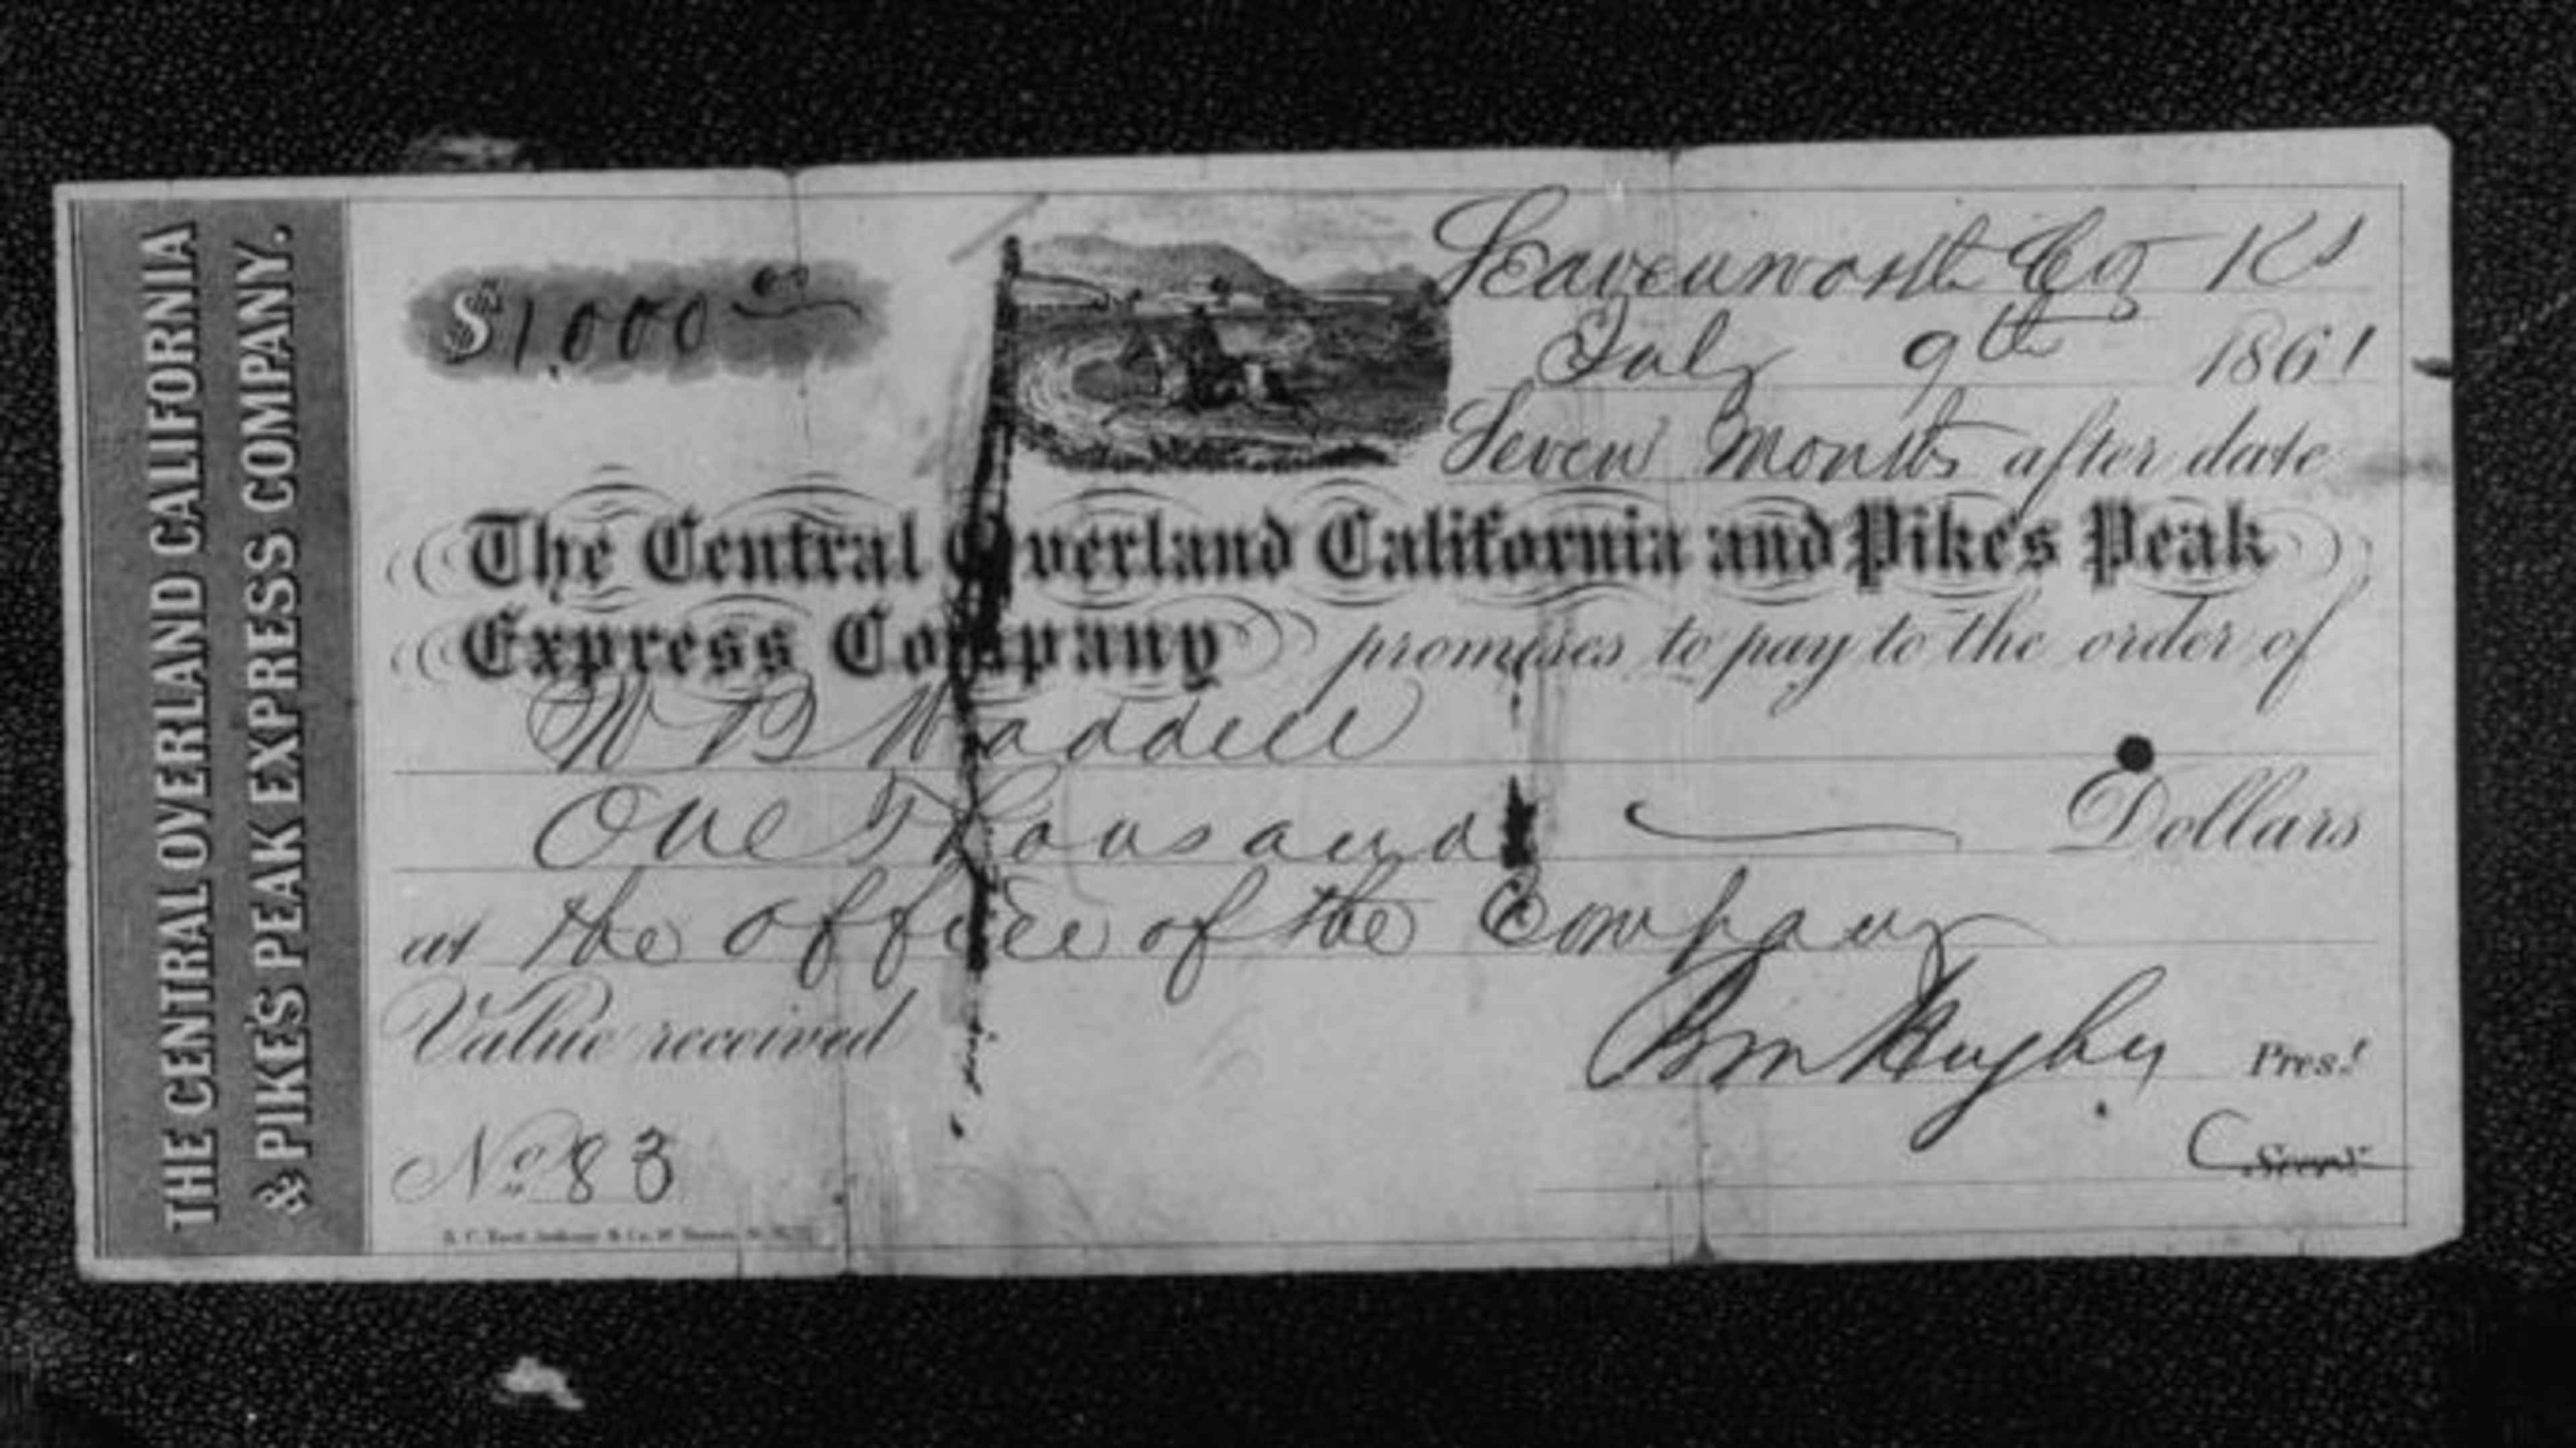 THE CENTRAL OVERLAND CALIFORNIA
& PIKE'S PEAK EXPRESS COMPANY.
$1,000 00
Leavenworth City Ks
July 9th 1861
Seven Months after date
The Central Overland California and Pike's Peak
Express Company promises to pay to the order of
W B Waddell
One Thousand Dollars
at the office of the Company
Value received
Bm Hughes Pres.t
No 83